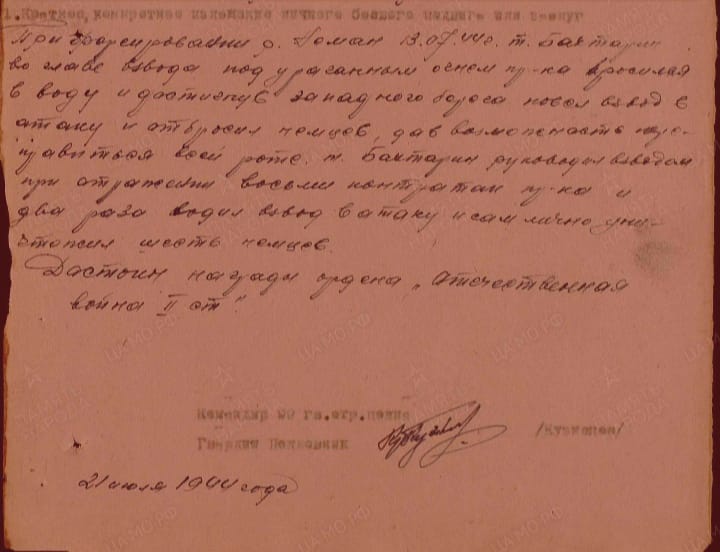 1. Краткое, конкретное изложение личного боевого подвига или заслуг
При форсировании р. 13.07.44г. т. Бахтарин
во главе взвода под ураганным огнем пр-ка бросился
в воду и достигнув западного берега повел взвод в
атаку и отбросил немцев, дав возможность пере-
правиться всей роте. т. Бахтарин руководил взводом
при отражении восьми контратак пр-ка и
два раза водил взвод в атаку и сам лично уни-
чтожил шесть немцев.
Достоин награды ордена „Отечественная
война II ст".
Командир 99 гв.стр.полка
Гвардии Полковник /Кузнецов/
21 июля 1944 года
ЦАМО.РФ